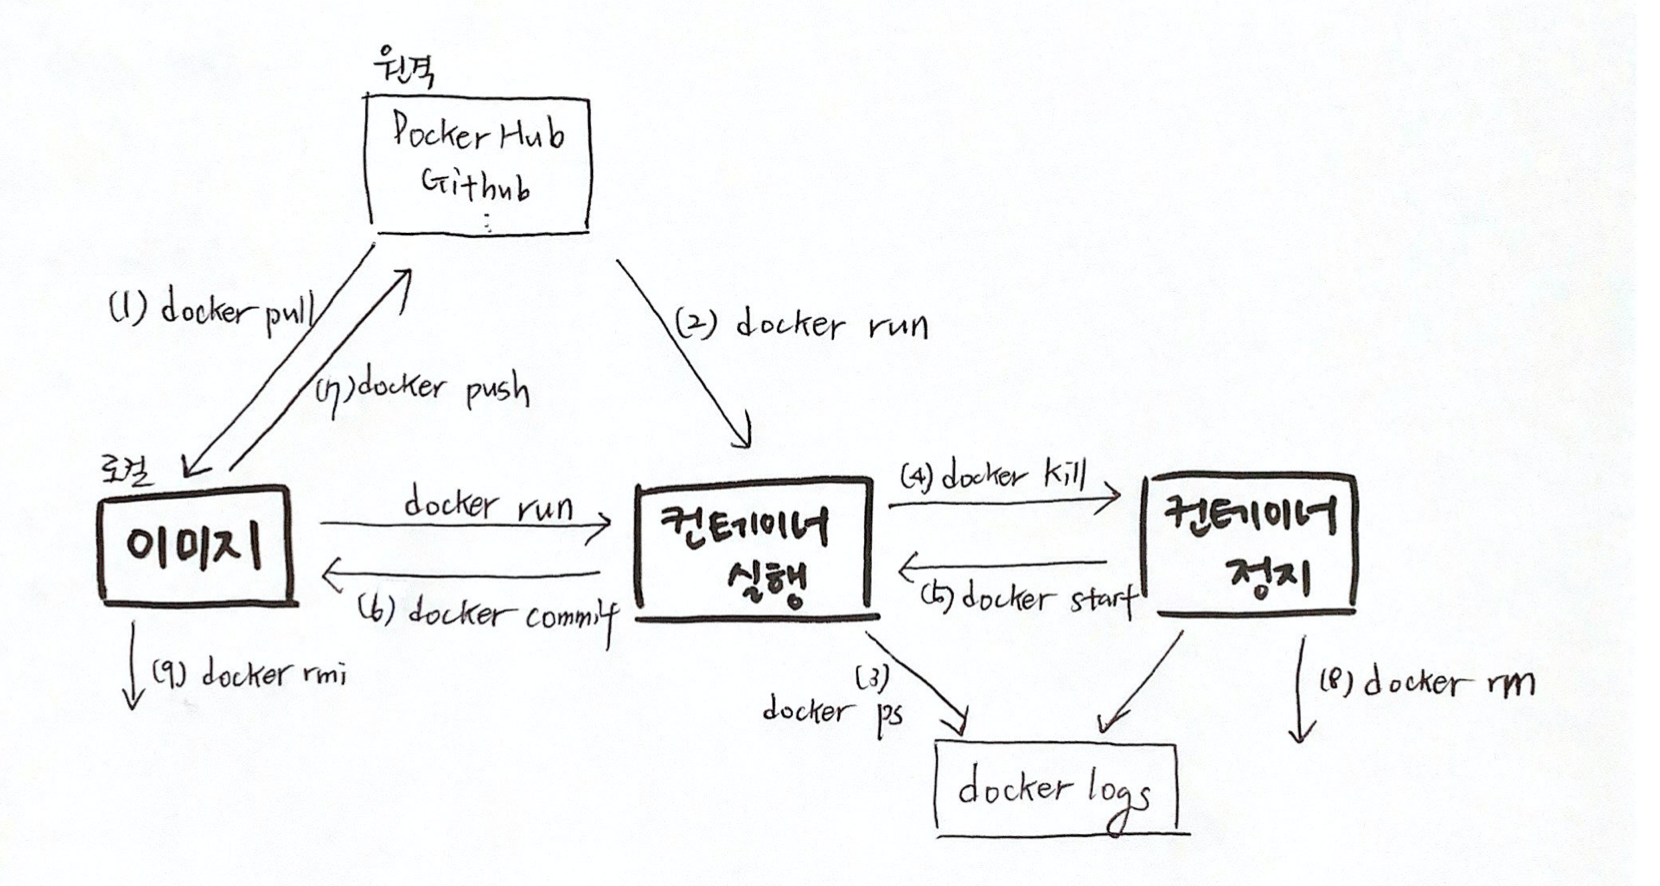 원격
Docker Hub
Github
⋮
(1) docker pull
(2) docker run
(7) docker push
로컬
이미지
docker run
(6) docker commit
컨테이너
실행
(4) docker kill
(5) docker start
컨테이너
정지
(9) docker rmi
(3)
docker ps
(8) docker rm
docker logs